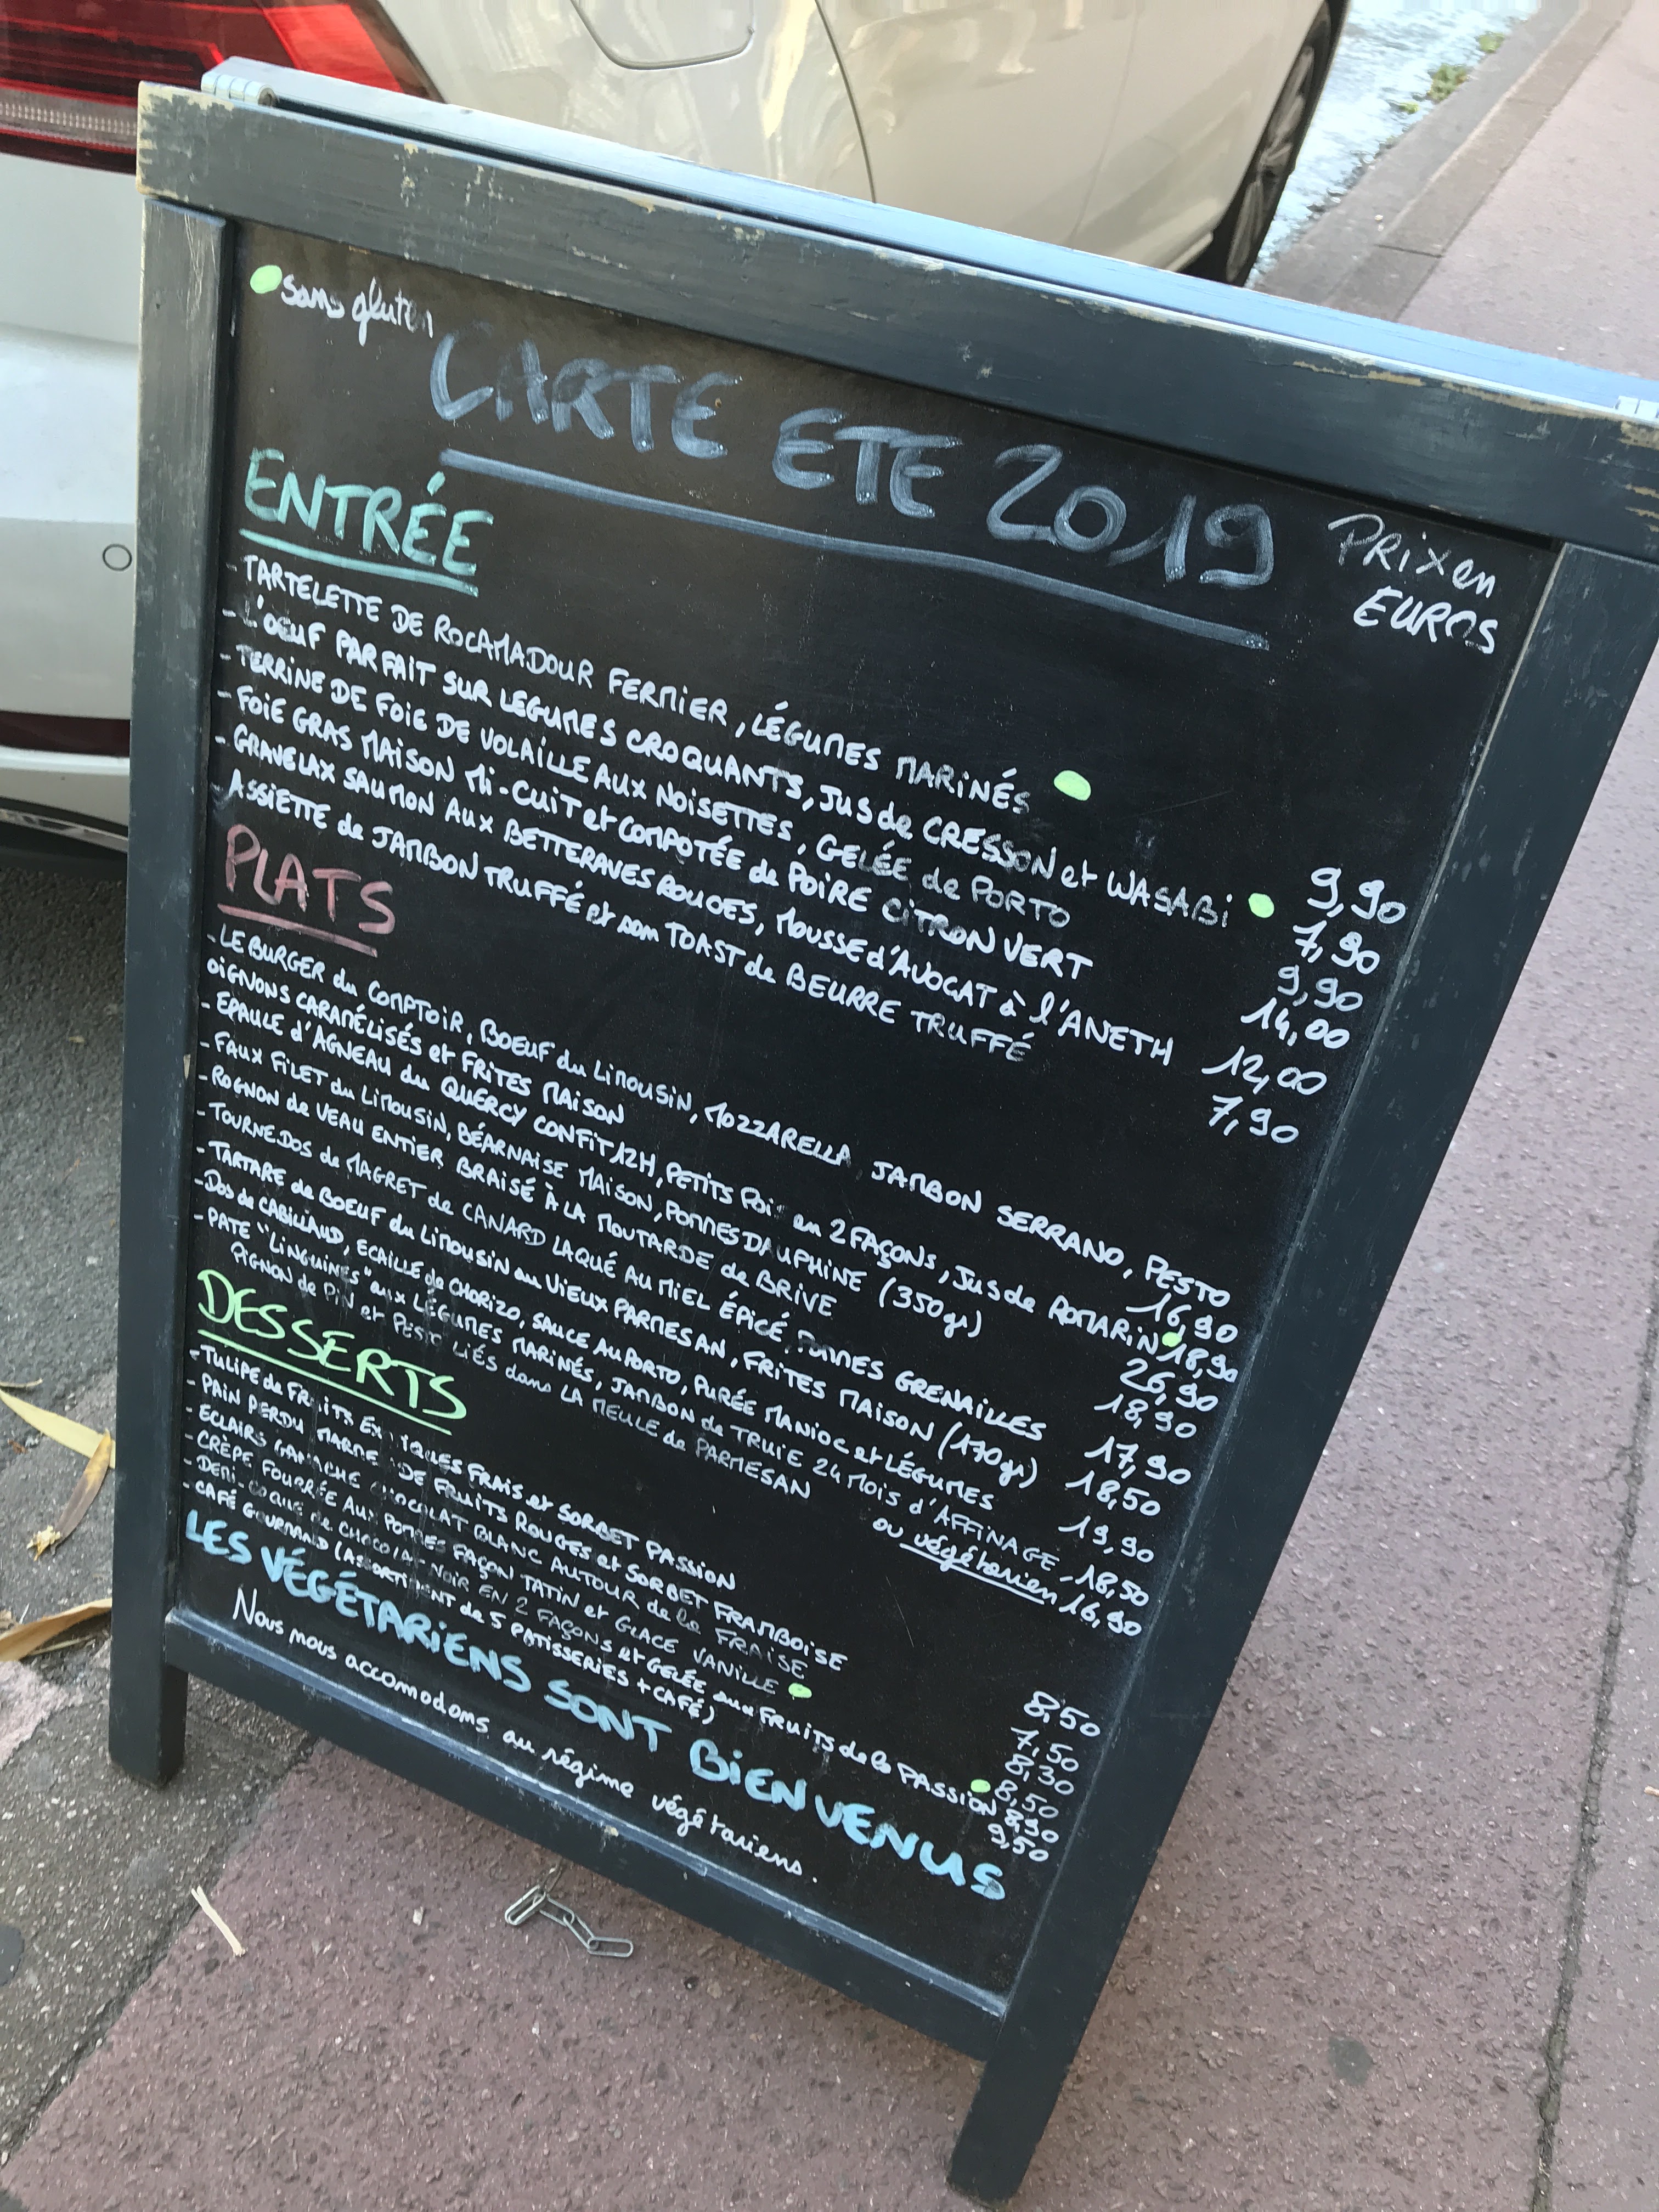 sans gluten
CARTE ETE 2019
PRIX en
EUROS
ENTRÉE
- TARTELETTE DE ROCAMADOUR FERMIER, LÉGUMES MARINÉS 9,90
- L'OEUF PARFAIT SUR LEGUMES CROQUANTS, JUS de CRESSON et WASABI 7,90
- TERRINE DE FOIE DE VOLAILLE AUX NOISETTES, GELÉE de PORTO 9,90
- FOIE GRAS MAISON MI-CUIT et COMPOTÉE de POIRE CITRON VERT 14,00
- GRAVELAX SAUMON AUX BETTERAVES ROUGES, MOUSSE d'AVOCAT à l'ANETH 12,00
- ASSIETTE de JAMBON TRUFFÉ et son TOAST de BEURRE TRUFFÉ 7,90
PLATS
- LE BURGER du COMPTOIR, BOEUF du LIMOUSIN, MOZZARELLA, JAMBON SERRANO, PESTO
OIGNONS CARAMÉLISÉS et FRITES MAISON 16,90
- EPAULE d'AGNEAU du QUERCY CONFIT 12H, PETITS POIS en 2 FAÇONS, JUS de ROMARIN 18,90
- FAUX FILET du LIMOUSIN, BÉARNAISE MAISON, POMMES DAUPHINE (350gr) 26,90
- ROGNON de VEAU ENTIER BRAISÉ À LA MOUTARDE de BRIVE 18,90
- TOURNEDOS de MAGRET de CANARD LAQUÉ AU MIEL ÉPICÉ, POMMES GRENAILLES 17,90
- TARTARE de BOEUF du LIMOUSIN au VIEUX PARMESAN, FRITES MAISON (170gr) 18,50
- DOS de CABILLAUD, ECAILLE de CHORIZO, SAUCE AU PORTO, PURÉE MANIOC et LÉGUMES 19,90
- PATE "LINGUINES" aux LÉGUMES MARINÉS, JAMBON de TRUIE 24 MOIS d'AFFINAGE - 18,50
PIGNON de PIN et PESTO LIÉS dans LA MEULE de PARMESAN ou végétarien 16,90
DESSERTS
- TULIPE de FRUITS EXOTIQUES FRAIS et SORBET PASSION 8,50
- PAIN PERDU, MARMELADE FRUITS ROUGES et SORBET FRAMBOISE 7,50
- ECLAIRS GANACHE CHOCOLAT BLANC AUTOUR de la FRAISE 8,30
- CRÈPE FOURRÉE AUX POMMES FAÇON TATIN et GLACE VANILLE 8,50
- DEMI-COQUE de CHOCOLAT NOIR EN 2 FAÇONS et GELÉE aux FRUITS de la PASSION 8,90
- CAFÉ GOURMAND (ASSORTIMENT de 5 PATISSERIES + CAFÉ) 9,50
LES VÉGÉTARIENS SONT BIENVENUS
Nous nous accomodons au régime végétariens.